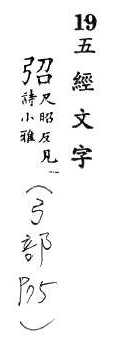 19五經文字
弨尺昭反見
詩小雅
(弓部P75)